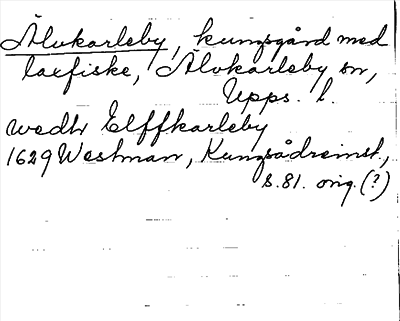 Älvkarleby, kungsgård med
laxfiske, Älvkarleby sn,
Upps. l.
wedh Elffkarleby
1629 Westman, Kungsådreinst.,
s. 81. orig. (?)